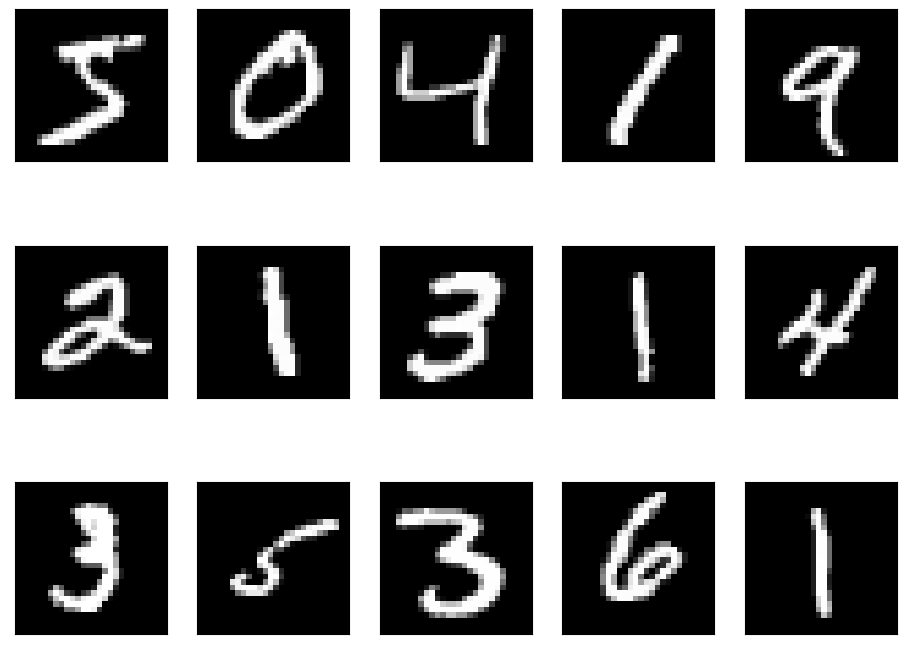 5 0 4 1 9
2 1 3 1 4
3 5 3 6 1